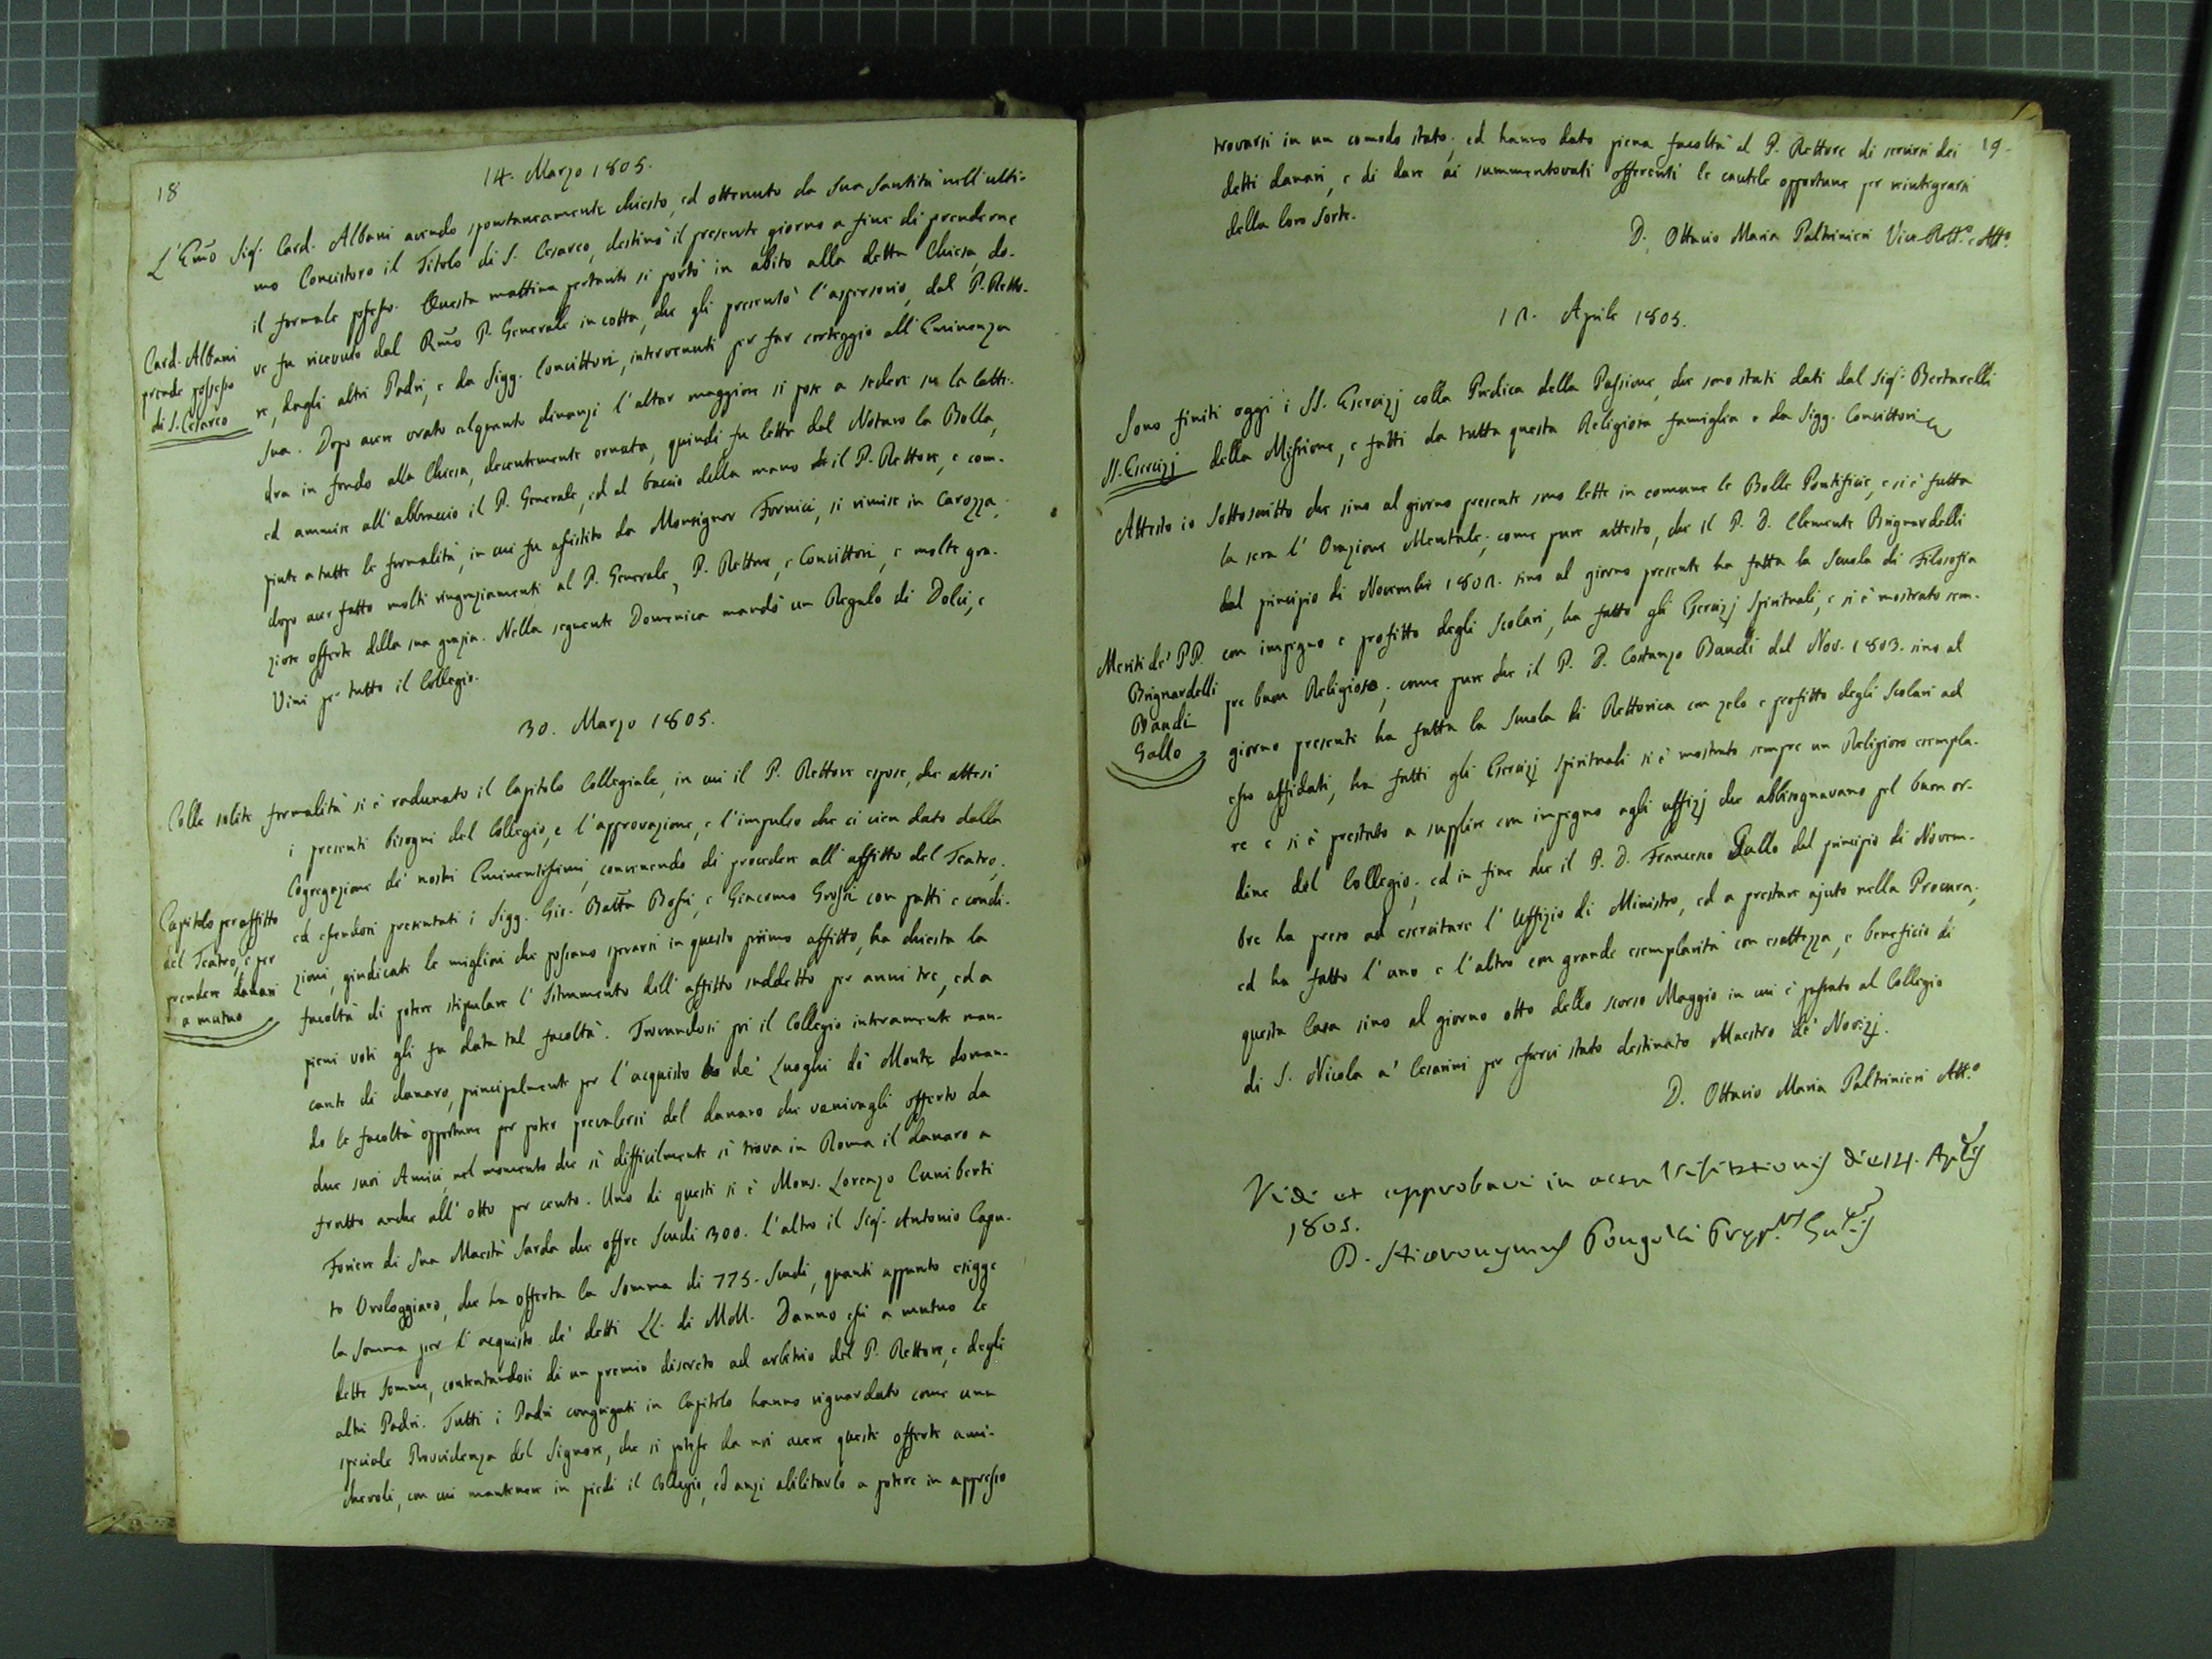 18
14. Marzo 1805.
L'Em̃o Sig.r Card. Albani avendo spontaneamente chiesto, ed ottenuto da Sua Santità nell'ulti-
mo Concistoro il Titolo di S. Cesareo, destinò il presente giorno a fine di prenderne
il formale possesso. Questa mattina pertanto si portò in abito alla detta Chiesa, do-
ve fu ricevuto dal Rm̃o P. Generale in cotta, che gli presentò l'aspersorio, dal P. Retto-
re, dagli altri Padri, e da Sigg. Convittori, intervenuti per far corteggio all'Eminenza
Sua. Dopo avere orato alquanto dinanzi l'altar maggiore si pose a sedere su la catte-
dra in fondo alla Chiesa, decentemente ornata, quindi fu letta dal Notaro la Bolla,
ed ammise all'abbraccio il P. Generale, ed al baccio della mano il P. Rettore, e com-
piute a tutte le formalità, in cui fu assistito da Monsignor Fornici, si rimise in Carozza,
dopo aver fatto molti ringraziamenti al P. Generale, P. Rettore, e Convittori, e molte gra-
ziose offerte della sua grazia. Nella seguente Domenica mandò un Regalo di Dolci, e
Vini per tutto il Collegio.
Card. Albani
prende possesso
di S. Cesareo
30. Marzo 1805.
Colle solite formalità si è radunato il Capitolo Collegiale, in cui il P. Rettore espose, che attesi
i presenti bisogni del Collegio, e l'approvazione, e l'impulso che ci vien dato dalla
Cogregazione de' nostri Eminentissimi, convenendo di procedere all'affitto del Teatro,
ed essendosi presentati i Sigg. Gio. Batt̃a Bossi, e Giacomo Grossi con patti e condi-
zioni, giudicati le migliori che possano sperarsi in questo primo affitto, ha chiesta la
facoltà di potere stipulare l'Istrumento dell'affitto suddetto per anni tre, ed a
pieni voti gli fu data tal facoltà. Trovandosi poi il Collegio interamente man-
cante di danaro, principalmente per l'acquisto de' Luoghi di Monte, doman-
dò le facoltà opportune per poter prevalersi del danaro che venivagli offerto da
due suoi Amici, nel momento che sì difficilmente si trova in Roma il danaro a
frutto anche all'otto per cento. Uno di questi si è Mons. Lorenzo Cuniberti
Foriere di Sua Maestà Sarda che offre Scudi 300. l'altro il Sig.r Antonio Capu-
to Orologgiaro, che ha offerta la Somma di 775. Scudi, quanti appunto esigge
la Somma per l'acquisto de' detti LL. di MM. Danno essi a mutuo le
dette Somme, contentandosi di un premio discreto ad arbitrio del P. Rettore, e degli
altri Padri. Tutti i Padri congregati in Capitolo hanno riguardato come una
speciale Provvidenza del Signore, che si potesse da noi avere queste offerte ami-
chevoli, con cui mantenere in piedi il Collegio, ed anzi abilitarlo a potere in appresso
Capitolo per affitto
del Teatro, e per
prendere danari
a mutuo
19.
trovarsi in un comodo stato; ed hanno dato piena facoltà al P. Rettore di servirsi dei
detti danari, e di dare ai summentovati offerenti le cautele opportune per reintegrarsi
della loro Sorte.
D. Ottavio Maria Paltrinieri Vice-Rett.e e Att.o
12. Aprile 1805.
Sono finiti oggi i SS. Esercizj colla Predica della Passione, che sono stati dati dal Sig.r Bertarelli
della Missione, e fatti da tutta questa Religiosa famiglia e da Sigg. Convittori
SS. Esercizj
Attesto io Sottoscritto che sino al giorno presente sono lette in comune le Bolle Pontificie, e si è fatta
la sera l'Orazione Mentale; come pure attesto, che il P. D. Clemente Brignardelli
dal principio di Novembre 1802. sino al giorno presente ha fatta la Scuola di Filosofia
con impegno e profitto degli Scolari, ha fatto gli Esercizj Spirituali, e si è mostrato sem-
pre buon Religioso; come pure che il P. D. Costanzo Baudi dal Nov. 1803. sino al
giorno presente ha fatta la Scuola di Rettorica con zelo e profitto degli Scolari ad
esso affidati, ha fatti gli Esercizj Spirituali si è mostrato sempre un Religioso esempla-
re e si è prestato a supplire con impegno agli uffizj che abbisognavano pel buon or-
dine del Collegio; ed in fine che il P. D. Francesco Gallo dal principio di Novem-
bre ha preso ad esercitare l'Uffizio di Ministro, ed a prestare ajuto nella Procura,
ed ha fatto l'uno e l'altro con grande esemplarità con esattezza, e beneficio di
questa Casa sino al giorno otto dello scorso Maggio in cui è passato al Collegio
di S. Nicola a' Cesarini per esservi stato destinato Maestro de' Novizj.
Meriti de' PP.
Brignardelli
Baudi
Gallo
D. Ottavio Maria Paltrinieri Att.o
Vidi et approbavi in actu Visitationis die 14. Aplis
1805.
D. Hieronymus Pongelli Prep.us Gn̄lis